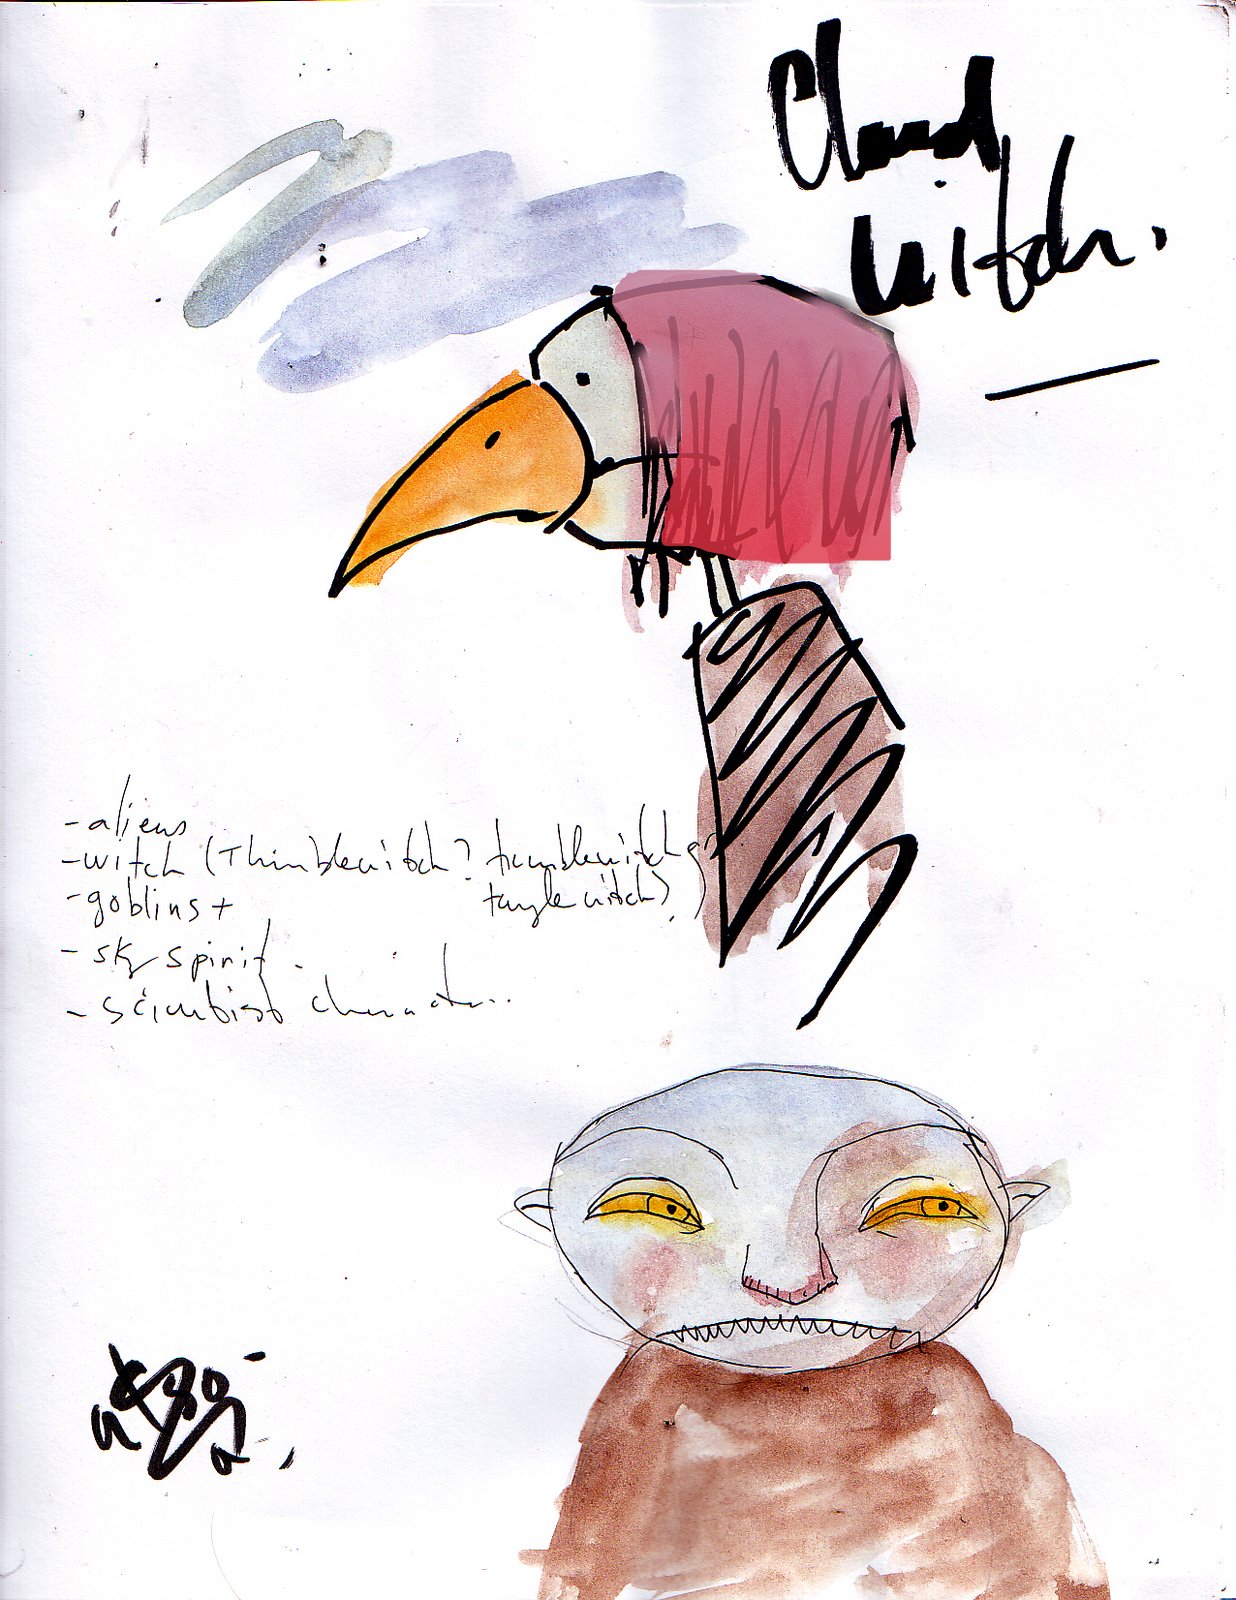 Cloud
witch.
- aliens
- witch (Thimblewitch? tumblewitch?
tanglewitch?)
- goblins +
- sky spirit.
- scientist character..